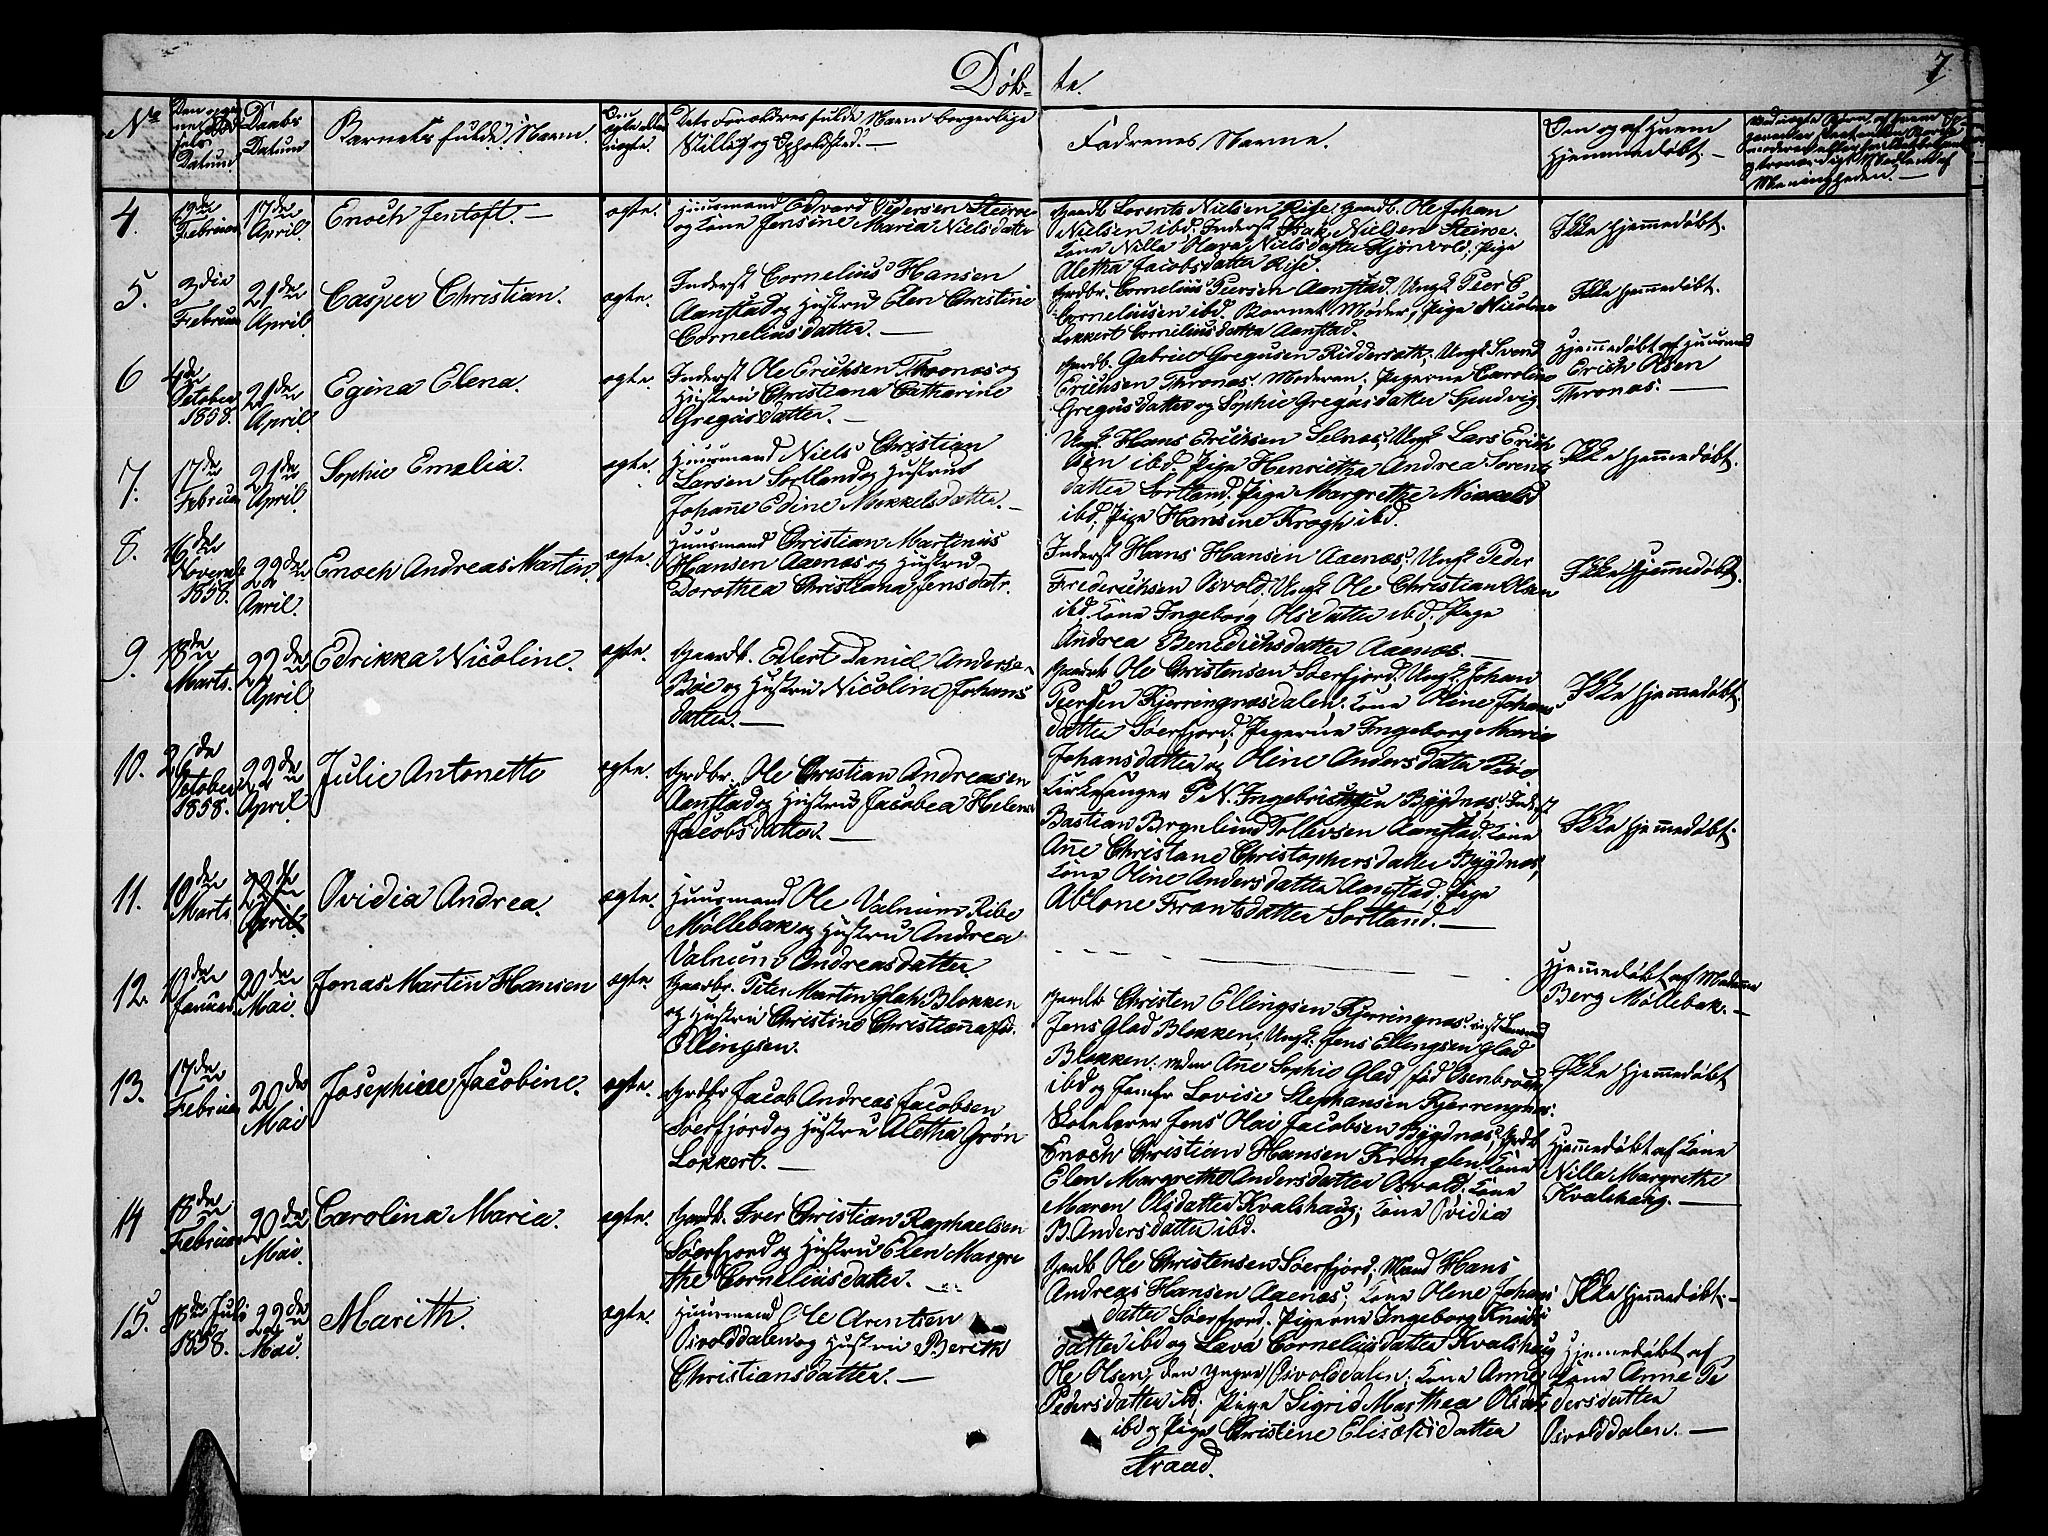 Døb-
te.
7
No
Datum
Daabs
Datum
Barnets fulde Navn.
Dets Forældres fulde Navn borgerlige
Stilling og Opholdsted. —
Fadrenes Navne.
Om og af hvem
hjemmedøbt. —
Menigheden. —
4.
Februar
17de
April.
Enoch Jentoft. —
ægte.
Huusmand Edvard Pedersen Steiroe
og Kone Jensine Maria Nielsdatter
Gaardb. Lorents Nielsen Rise, Gaardb. Ole Johan
Nielsen ibd, Inderst Isak Nielsen Steiroe.
Kone Nilla Olava Nielsdatter Kjønvold, Pige
Aletha Jacobsdatter Rise.
Ikke hjemmedøbt.
5.
3die
Februar
21de
April
Casper Christian.
ægte.
Inderst Cornelius Hansen
Aanstad og Hustru Elen Christine
Corneliusdatter. —
Grdbr. Cornelius Peersen Aanstad. Ungk. Peer C
Corneliusen ibd. Barnets Moder, Pige Nicoline
Lokkert Corneliusdatter Aanstad.
Ikke hjemmedøbt.
6
4de
October
1858.
21de
April
Egina Elena.
ægte.
Inderst Ole Erichsen Thronæs og
Hustru Christiana Catharine
Gregusdatter. —
Gardb. Gabriel Gregusen Riddersæth, Ungk. Sverd
Erichsen Thronæs. Moderen; Pigerne Caroline
Gregusdatter og Sophie Gregusdatter Spindvig.
Hjemmedøbt af Huusmand
Erich Olsen
Thronæs. —
7.
17de
Februar
21de
April
Sophie Emelia.
ægte.
Huusmand Niels Christian
Larsen Sortland og Hustru
Johanne Edine Mekkelsdatter. —
Ungk. Hans Erichsen Selnes, Ungk. Lars Erich
sen ibd. Pige Henrietha Andrea Sorents
datter Sortland, Pige Margrethe
ibd, Pige Hansine Krogh ibd.
Ikke hjemmedøbt.
8.
16de
Novemb
1858.
22de
April.
Enoch Andreas Martin.
ægte.
Huusmand Christian Martinus
Hansen Aaenæs og Hustru
Dorothea Christiana Jensdatr.
Inderst Hans Hansen Aaenæs, Ungk. Peder
Frederichsen Osvold. Ungk. Ole Christian Olsen
ibd. Kone Ingeborg Olsdatter ibd, Pige
Andrea Benedichsdatter Aaenæs. —
Ikke hjemmedøbt.
9.
18de
Marts.
22de
April
Edrikka Nicoline.
ægte.
Gaardb. Edert Daniel Andersen
Bøe og Hustru Nicoline Johans
datter. —
Gaardb Ole Christensen Søerfjord. Ungk. Johan
Peersen Kjerringnæsdalen. Kone Oline Johans
datter Søerfjord, Pigerne Ingeborg Marie
Johansdatter og Oline Andersdatter Bøe
Ikke hjemmedøbt.
10.
26de
October
1858.
22de
April
Julie Antonette
ægte.
Grdbr. Ole Christian Andreasen
Aanstad og Hustru Jacobea Helena
Jacobsdatter. —
Kirkesanger P. N. Ingebrichtsen Bøgdnæs. Inderst
Bastian Brynlund Tollevsen Aanstad. Kone
Ane Christane Christophersdatter Bøgdnæs,
Kone Oline Andersdatter Aanstad. Pige
Ablone Frantsdatter Sortland. —
Ikke hjemmedøbt.
11.
10de
Marts.
22de
April
Ovidia Andrea.
ægte.
Huusmand Ole Valnum Ribe
Møllebæk og Hustru Andrea
Valnum Andreasdatter
Hjemmedøbt af Madame
Berg Møllebæk. —
12.
10de
Januar
20de
Mai.
Jonas Martin Hansen
ægte
Gaardbr. Peter Martin Glad Blokken
og Hustru Christine Christianna fd.
Ellingsen.
Gardb Christen Ellingsen Kjerringnæs.
Jens Glad Blokken, Ungk. Jens Ellengsen Glad
Blokken. Mdm Ane Sophie Glad, fød Osenbrock
ibd og Jomfr Lovise Stephansen Kjerringnæs.
Ikke hjemmedøbt
13.
17de
Februar
20de
Mai
Josephine Jacobine.
ægte.
Grdbr Jacob Andreas Jacobsen
Søerfjord og Hustru Aletha Grøn
Lokkert. —
Skolelærer Jens Olai Jacobsen Bøgdnæs, Grdb
Enoch Christian Hansen Kringlen. Kone
Elen Margrethe Andersdatter Osvold. Kone
Maren Olsdatter Kvalshaug; Kone Ovidia
B. Andersdatter ibd.
Hjemmedøbt af Kone
Nilla Margrethe
Kvalshaug. —
14
18de
Februar
20de
Mai.
Carolina Maria.
ægte.
Gardb. Iver Christian Raphaelsen
Søerfjord og Hustru Elen Margre
the Corneliusdatter. —
Gardb Ole Christensen Søerfjord, Mand Hans
Andreas Hansen Aaenæs; Kone Olene Johans
datter Søerfjord. Pigerne Ingeborg Knuds
datter ibd og Lava Corneliusdatter Kvalshaug
Ikke hjemmedøbt. —
15.
18de Juli
1858.
22de
Mai.
Marith.
ægte.
Huusmand Ole Arentsen
Osvolddalen og Hustru Berith
Christiansdatter. —
Ole Olsen, den yngre Osvolddalen; Kone Anne
Pedersdatter ibd; Pige Sigrid Marthea Olsdtr
ibd og Pige Christine Eliseksdatter
Straad.
Hjemmedøbt af
Kone Anne Pe
dersdatter
Osvolddalen. —